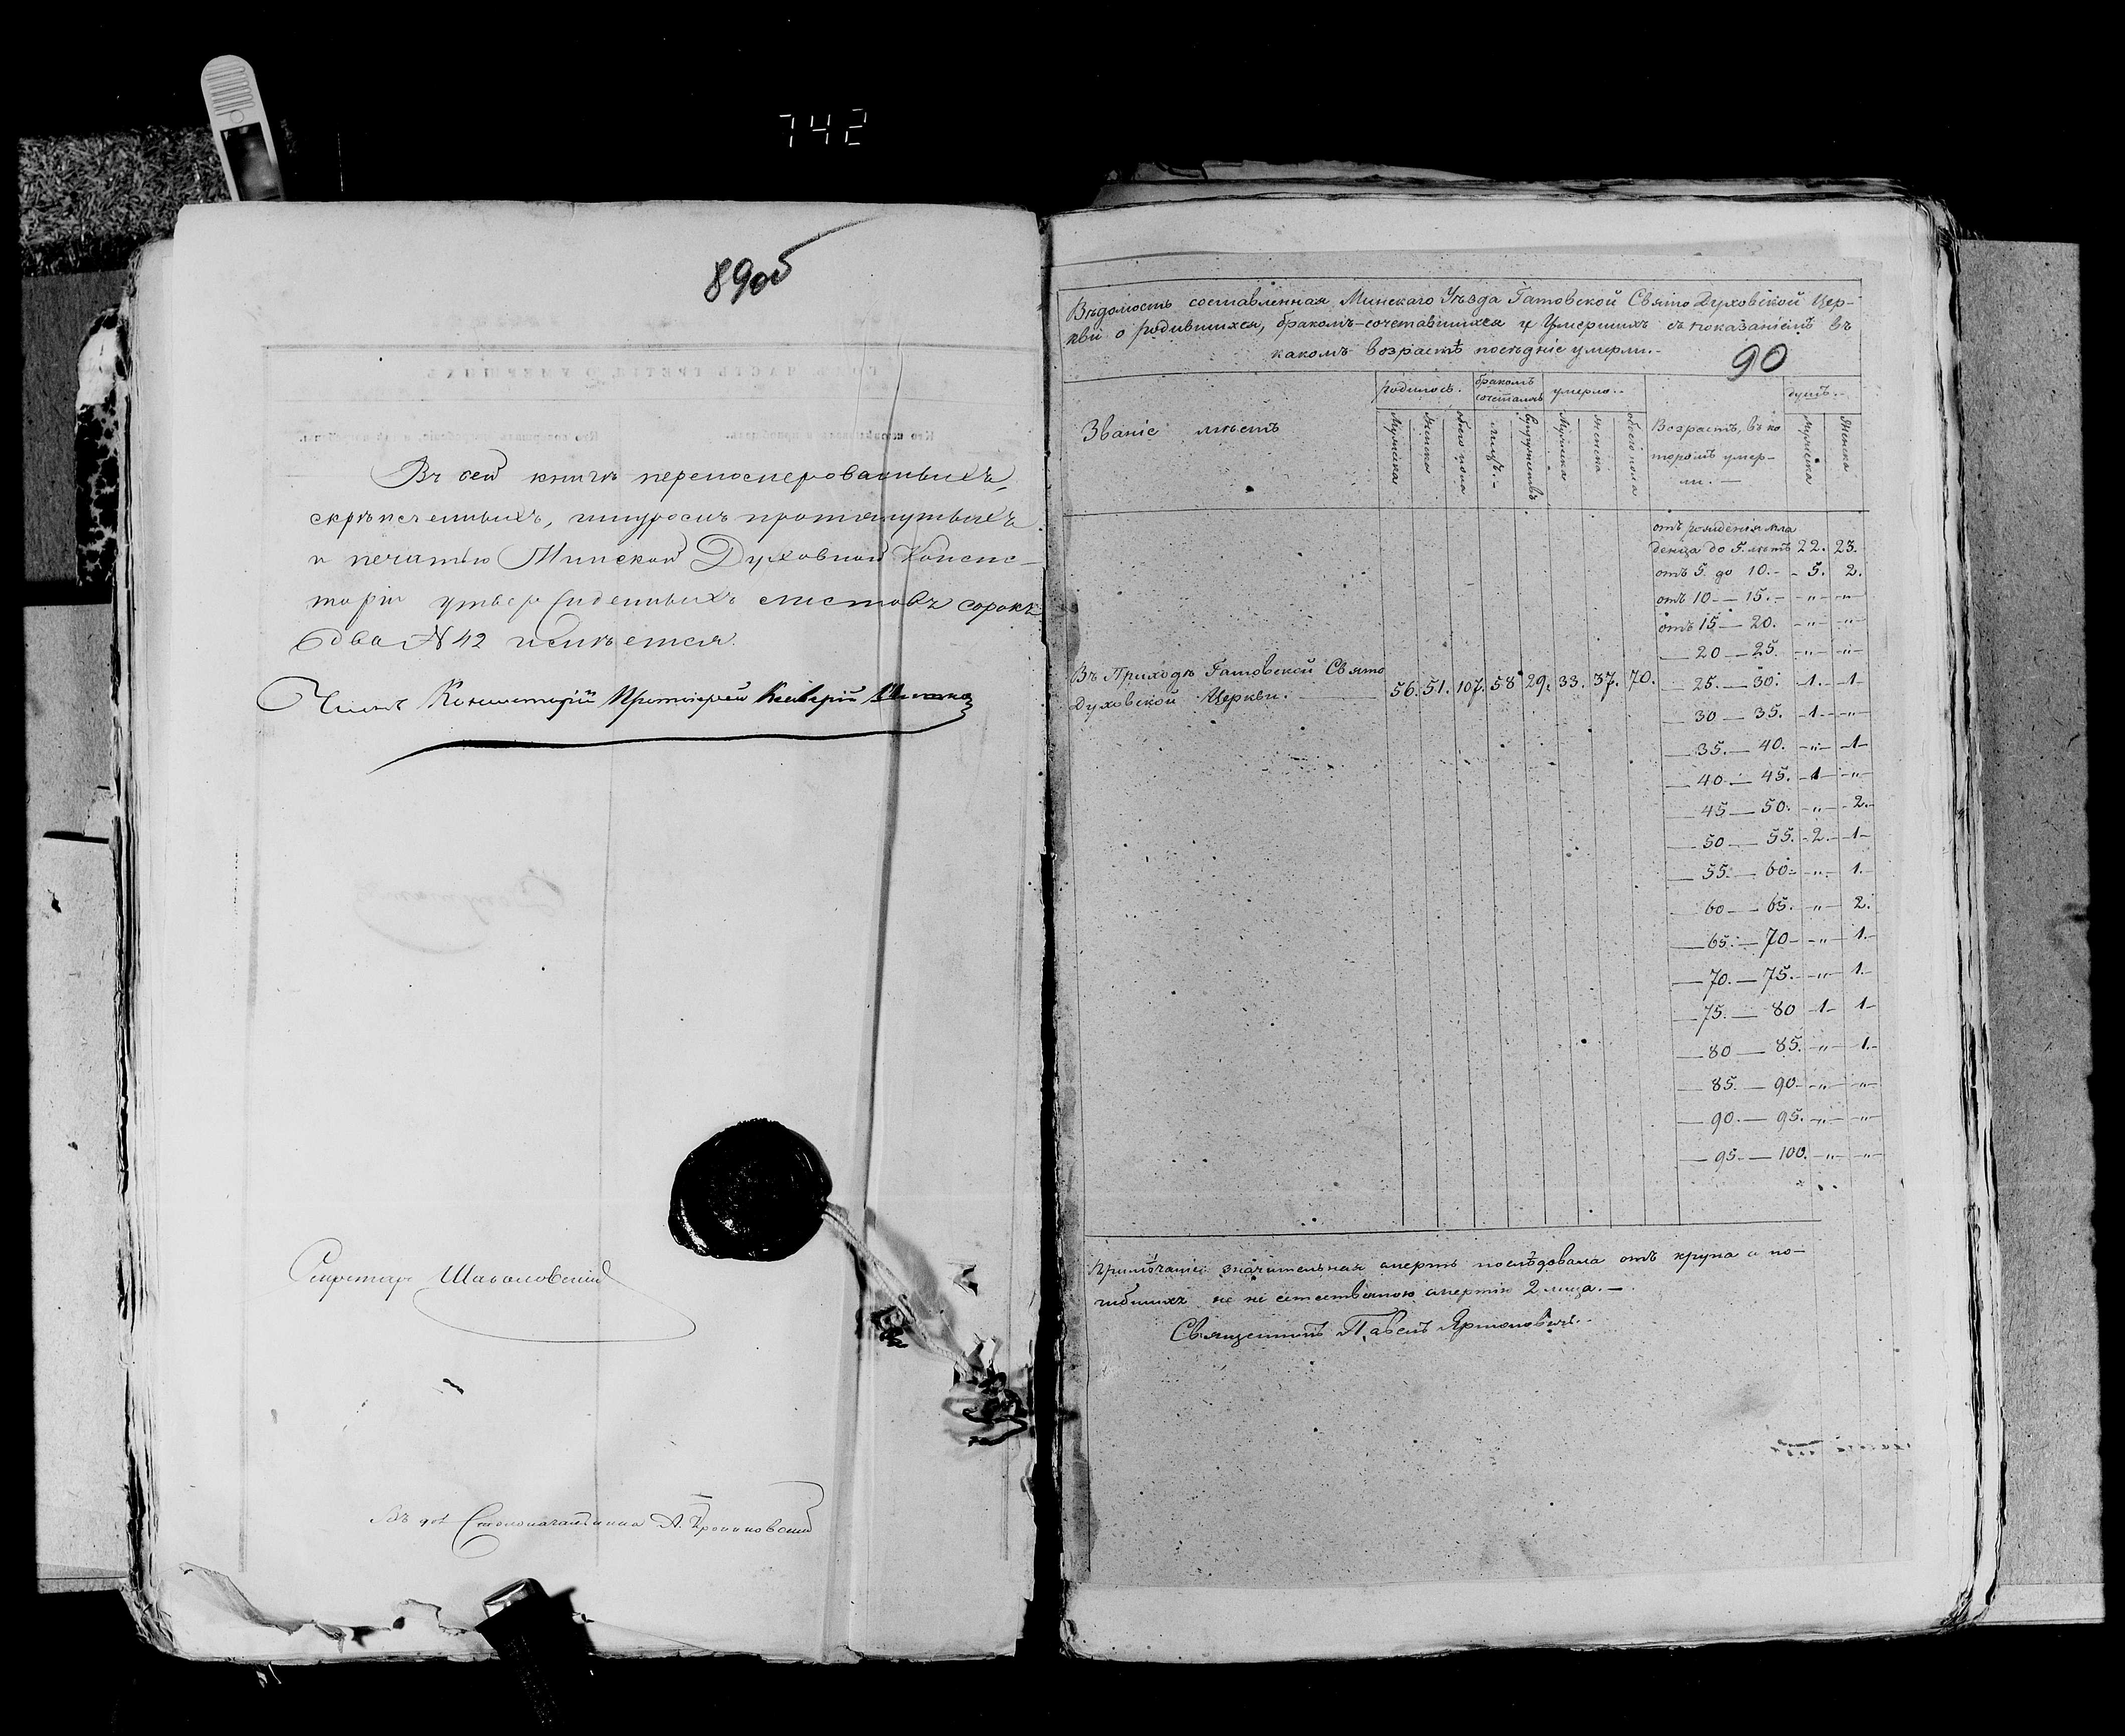 742
89об
Въ сей книгѣ перенумерованныхъ,
скрѣпленныхъ, шнуромъ протянутыхъ
и печатью Минской Духовной Консис-
торіи утвержденныхъ листовъ сорокъ
два N 42 имѣется.
Членъ Консисторіи Протоіерей
Секретарь
Въ дол. Столоначальника А.
Вѣдомость составленная Минскаго Уѣзда Гатовской Свято Духовской Цер-
кви о родившихся, бракомъ-сочетавшихся и Умершихъ съ показаніемъ въ
какомъ возрастѣ послѣдніе умерли.-
90
Званіе мѣстъ
родилось. бракомъ сочеталось умерло. душъ.
Мужеска Женска обоего пола лицъ. Супружествъ Мужеска женска обоего пола Возрастъ, въ ко-
торомъ умер-
ли. — мужеска Женска
отъ рожденія мла
денца до 5. лѣтъ 22. 23.
отъ 5. до 10. - 5. 2.
отъ 10 — 15. - „ - „
отъ 15 — 20. - „ - „
— 20 — 25. - „ - „
Въ Приходѣ Гатовской Свято
Духовской Церкви. 56. 51. 107. 58 29. 33. 37. 70.
— 25. — 30. - 1. - 1
— 30 — 35. - 1 - „
— 35. — 40. - „ - 1
— 40 — 45. - 1 - „
— 45 — 50. - „ - 2.
— 50 — 55. - 2. - 1
— 55. — 60 - „ - 1.
— 60 — 65. - „ 2.
— 65. — 70 - „ 1.
— 70. — 75. - „ 1.
— 75. — 80 - 1 1
— 80 — 85. - „ 1.
— 85. — 90 - „ - „
— 90. — 95. - „ - „
— 95 — 100. - „ - „
Примѣчаніе: значительная смерть послѣдовала отъ крупа а по-
гибшихъ не естественою смертію 2 лица. —
Священникъ Павелъ